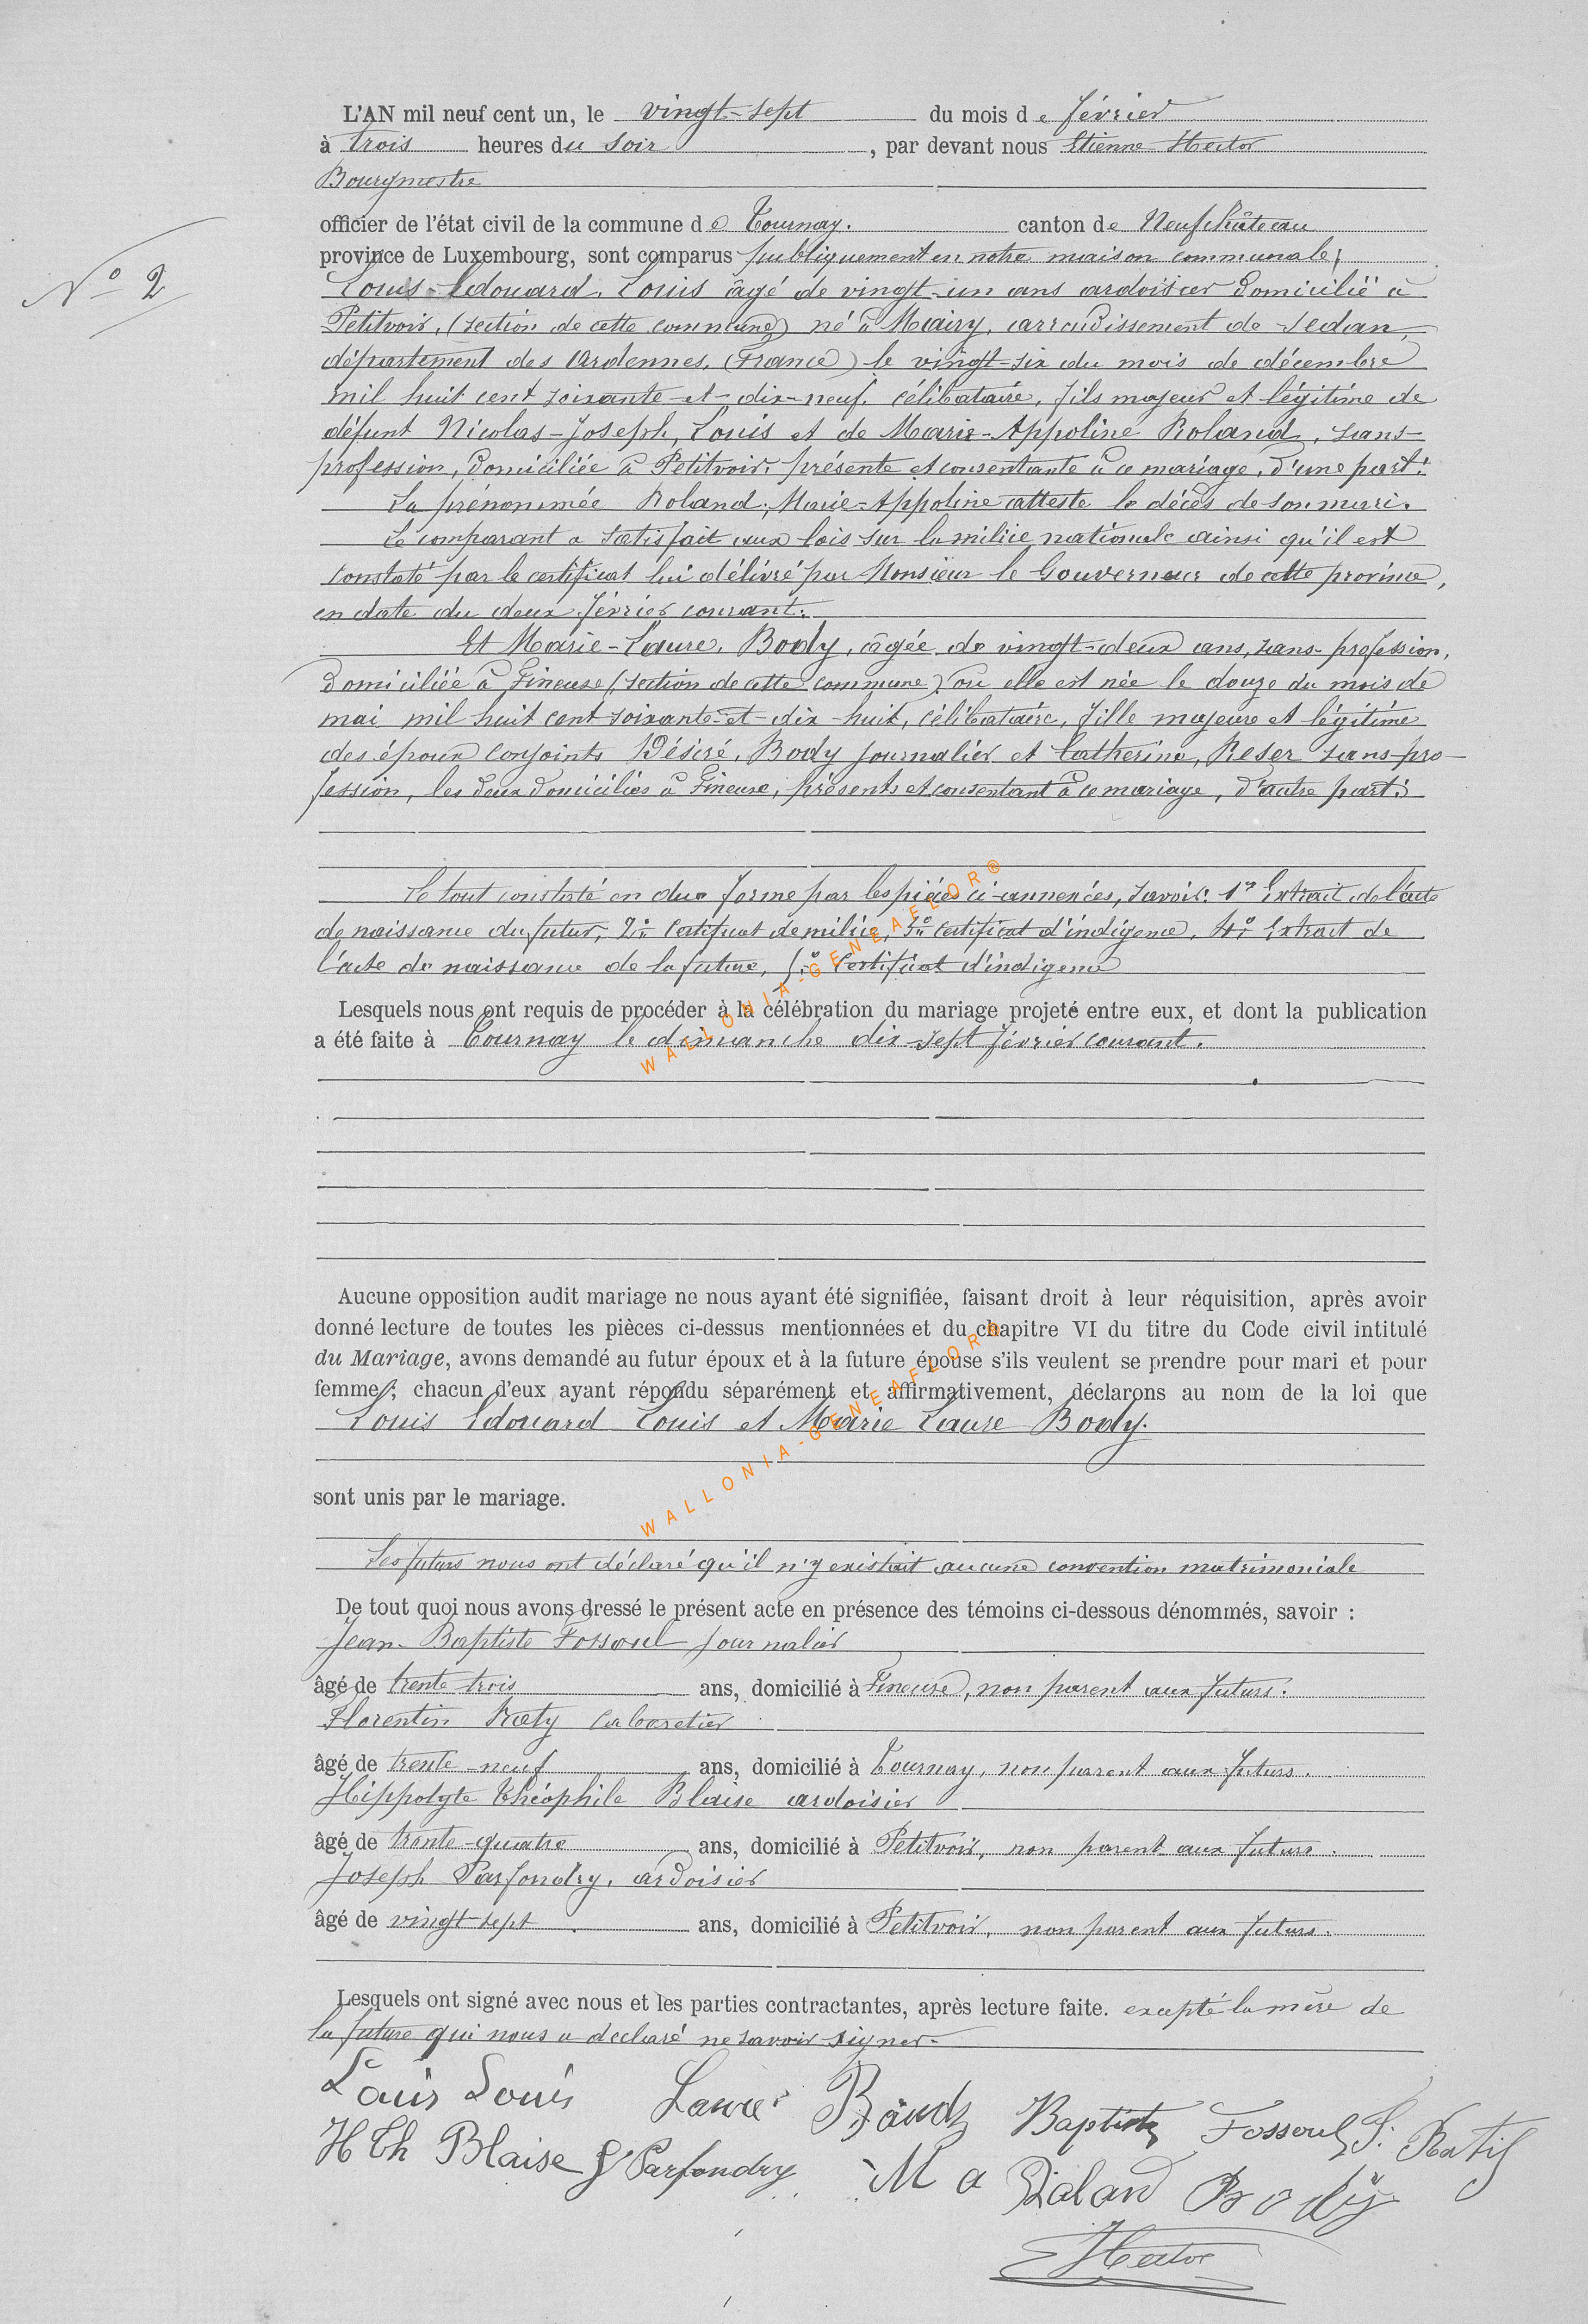 L'AN mil neuf cent un, le vingt-sept du mois de février
à trois heures du soir, par devant nous Etienne Hector
Bourgmestre
officier de l'état civil de la commune de Tournay. canton de Neufchâteau
province de Luxembourg, sont comparus publiquement en notre maison communale;
N° 2
Louis-Edouard, Louis âgé de vingt-un ans ardoisier domicilié à
Petitvoir, (section de cette commune) né à Mairy, arrondissement de Sedan,
département des Ardennes, (France) le vingt-six du mois de décembre
mil huit cent soixante-et-dix-neuf, célibataire, fils majeur et légitime de
défunt Nicolas-Joseph, Louis et de Marie-Appoline Roland, sans-
profession, domiciliée à Petitvoir, présente et consentante à ce mariage, d'une part:
La prénommée Roland, Marie-Appoline atteste le décès de son mari.
Le comparant a satisfait aux lois sur la milice nationale ainsi qu'il est
constaté par le certificat lui délivré par Monsieur le Gouverneur de cette province,
en date du deux février courant.
Et Marie-Laure, Body, âgée de vingt-deux ans, sans-profession,
domiciliée à Fineuse, (section de cette commune) où elle est née le douze du mois de
mai mil huit cent soixante-et-dix-huit, célibataire, fille majeure et légitime
des époux conjoints Désiré, Body journalier et Catherine, Reser sans-pro-
fession, les deux domiciliés à Fineuse, présents et consentant à ce mariage, d'autre part:
Le tout constaté en due forme par les pièces ci-annexées, savoir: 1° Extrait de l'acte
de naissance du futur, 2° Certificat de milice, 3° Certificat d'indigence, 4° Extrait de
l'acte de naissance de la future, 5° Certificat d'indigence
Lesquels nous ont requis de procéder à la célébration du mariage projeté entre eux, et dont la publication
a été faite à Tournay le dimanche dix-sept février courant.
WALLONIA-GENEAFLOR®
Aucune opposition audit mariage ne nous ayant été signifiée, faisant droit à leur réquisition, après avoir
donné lecture de toutes les pièces ci-dessus mentionnées et du chapitre VI du titre du Code civil intitulé
du Mariage, avons demandé au futur époux et à la future épouse s'ils veulent se prendre pour mari et pour
femme; chacun d'eux ayant répondu séparément et affirmativement, déclarons au nom de la loi que
Louis Edouard Louis et Marie Laure Body.
WALLONIA-GENEAFLOR®
sont unis par le mariage.
Les futurs nous ont déclaré qu'il n'y existait aucune convention matrimoniale
De tout quoi nous avons dressé le présent acte en présence des témoins ci-dessous dénommés, savoir :
Jean-Baptiste Fossoul journalier
âgé de trente trois ans, domicilié à Fineuse, non parent aux futurs.
Florentin Raty cabaretier
âgé de trente-neuf ans, domicilié à Tournay, non parent aux futurs.
Hippolyte Théophile Blaise ardoisier
âgé de trente-quatre ans, domicilié à Petitvoir, non parent aux futurs.
Joseph Parfondry, ardoisier
âgé de vingt-sept ans, domicilié à Petitvoir, non parent aux futurs.
Lesquels ont signé avec nous et les parties contractantes, après lecture faite. excepté la mère de
la future qui nous a declaré ne savoir signer.
Louis Louis Laure Baptiste Fossoul
H Th Blaise J Parfondry M a Roland Body
E Hector